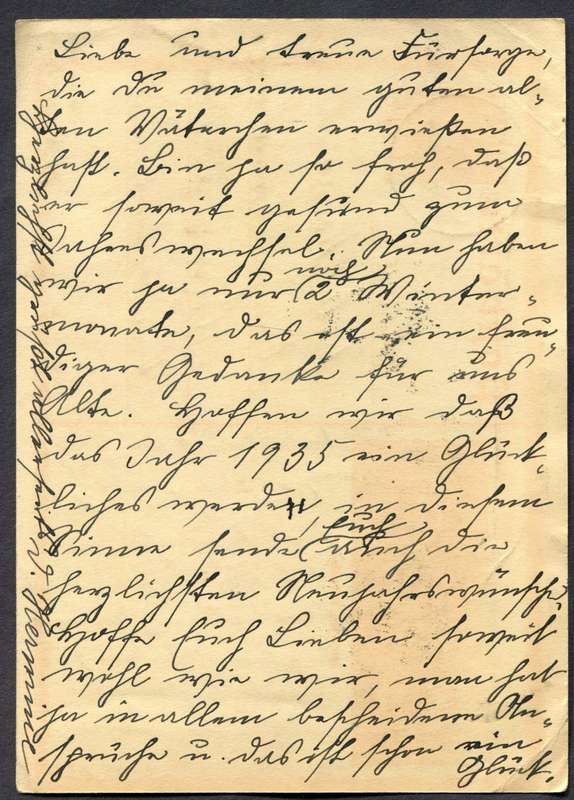 Liebe und treue Fürsorge,
die du meinem guten al-
ten Väterchen erwießen
hast. Bin ja so froh, daß
er soweit gesund zum
Jahreswechsel. Nun haben
wir ja nur noch 2 Winter-
monate, das ist ein freu-
diger Gedanke für uns
Alte. Hoffen wir daß
das Jahr 1935 ein Glück-
liches werde, in diesem
Sinne sende Euch auch die
herzlichsten Neujahrswünsche.
Hoffe Euch Lieben soweit
wohl wie wir, man hat
ja in allem bescheidene An-
sprüche u. das ist schon ein
Glück.
Hermine